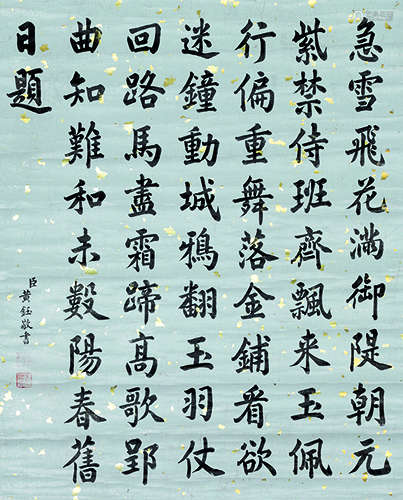 急雪飛花滿御隄朝元
紫禁侍班齊飄来玉佩
行偏重舞落金鋪看欲
迷鐘動城鴉翻玉羽仗
回路馬盡霜蹄高歌郢
曲知難和未斅陽春舊
日題
臣黄鈺敬書